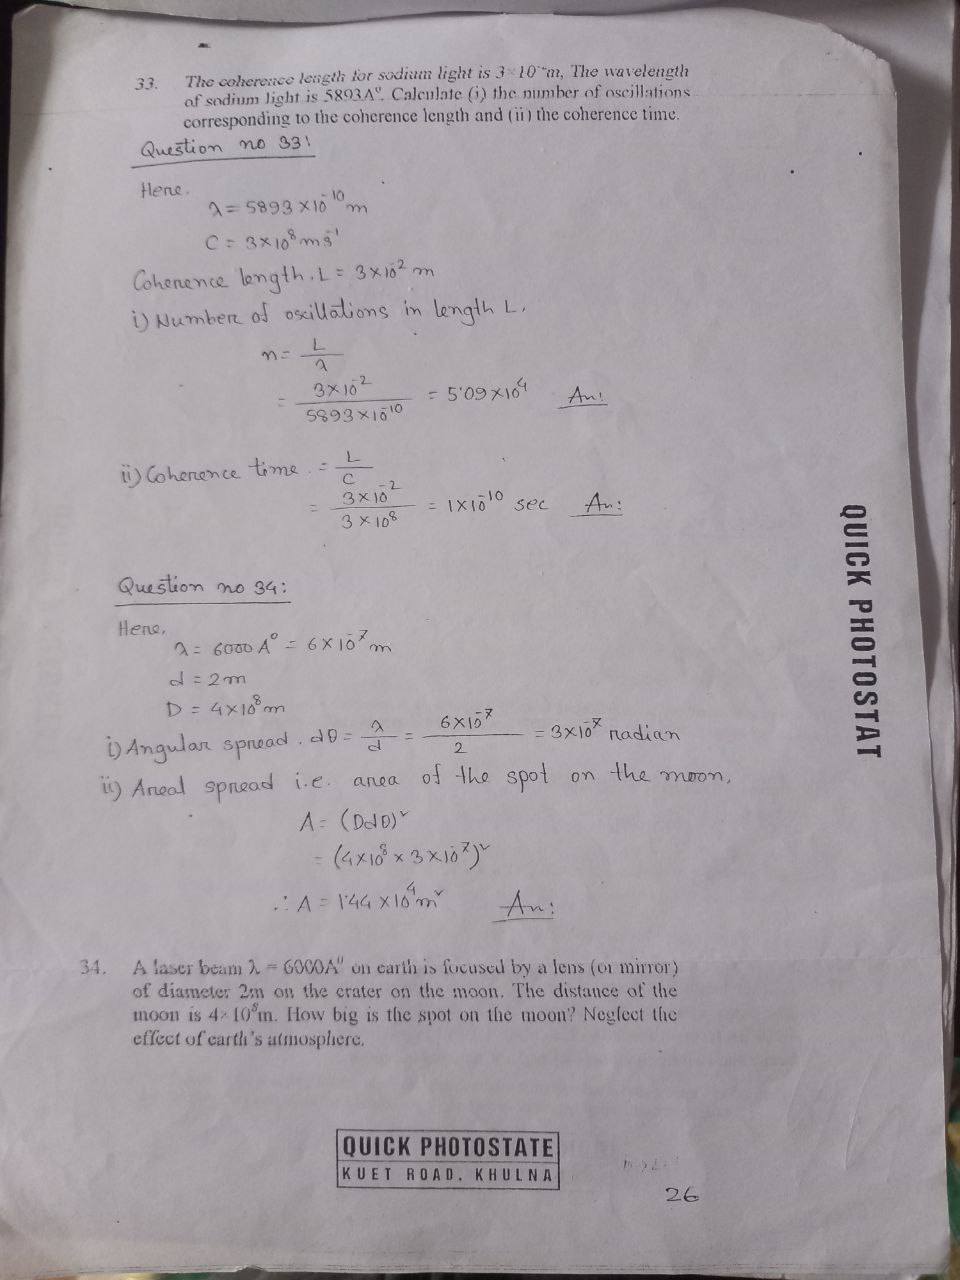 33. The coherence length for sodium light is 3×10⁻²m, The wavelength
of sodium light is 5893A⁰. Calculate (i) the number of oscillations
corresponding to the coherence length and (ii) the coherence time.
Question no 33:
Here.
λ = 5893 × 10⁻¹⁰ m
C = 3×10⁸ ms⁻¹
Coherence length, L = 3×10⁻² m
i) Number of oscillations in length L,
n = L/λ
= 3×10⁻² / 5893×10⁻¹⁰ = 5.09×10⁴ An:
ii) Coherence time. = L/C
= 3×10⁻² / 3×10⁸ = 1×10⁻¹⁰ sec An:
Question no 34:
Here,
λ = 6000 A⁰ = 6×10⁻⁷ m
d = 2m
D = 4×10⁸ m
i) Angular spread, dθ = λ/d = 6×10⁻⁷ / 2 = 3×10⁻⁷ radian
ii) Areal spread i.e. area of the spot on the moon,
A = (Ddθ)²
= (4×10⁸ × 3×10⁻⁷)²
∴ A = 1.44 × 10⁴ m² An:
34. A laser beam λ = 6000A⁰ on earth is focused by a lens (or mirror)
of diameter 2m on the crater on the moon. The distance of the
moon is 4×10⁸m. How big is the spot on the moon? Neglect the
effect of earth's atmosphere.
QUICK PHOTOSTAT
QUICK PHOTOSTATE
KUET ROAD, KHULNA
26